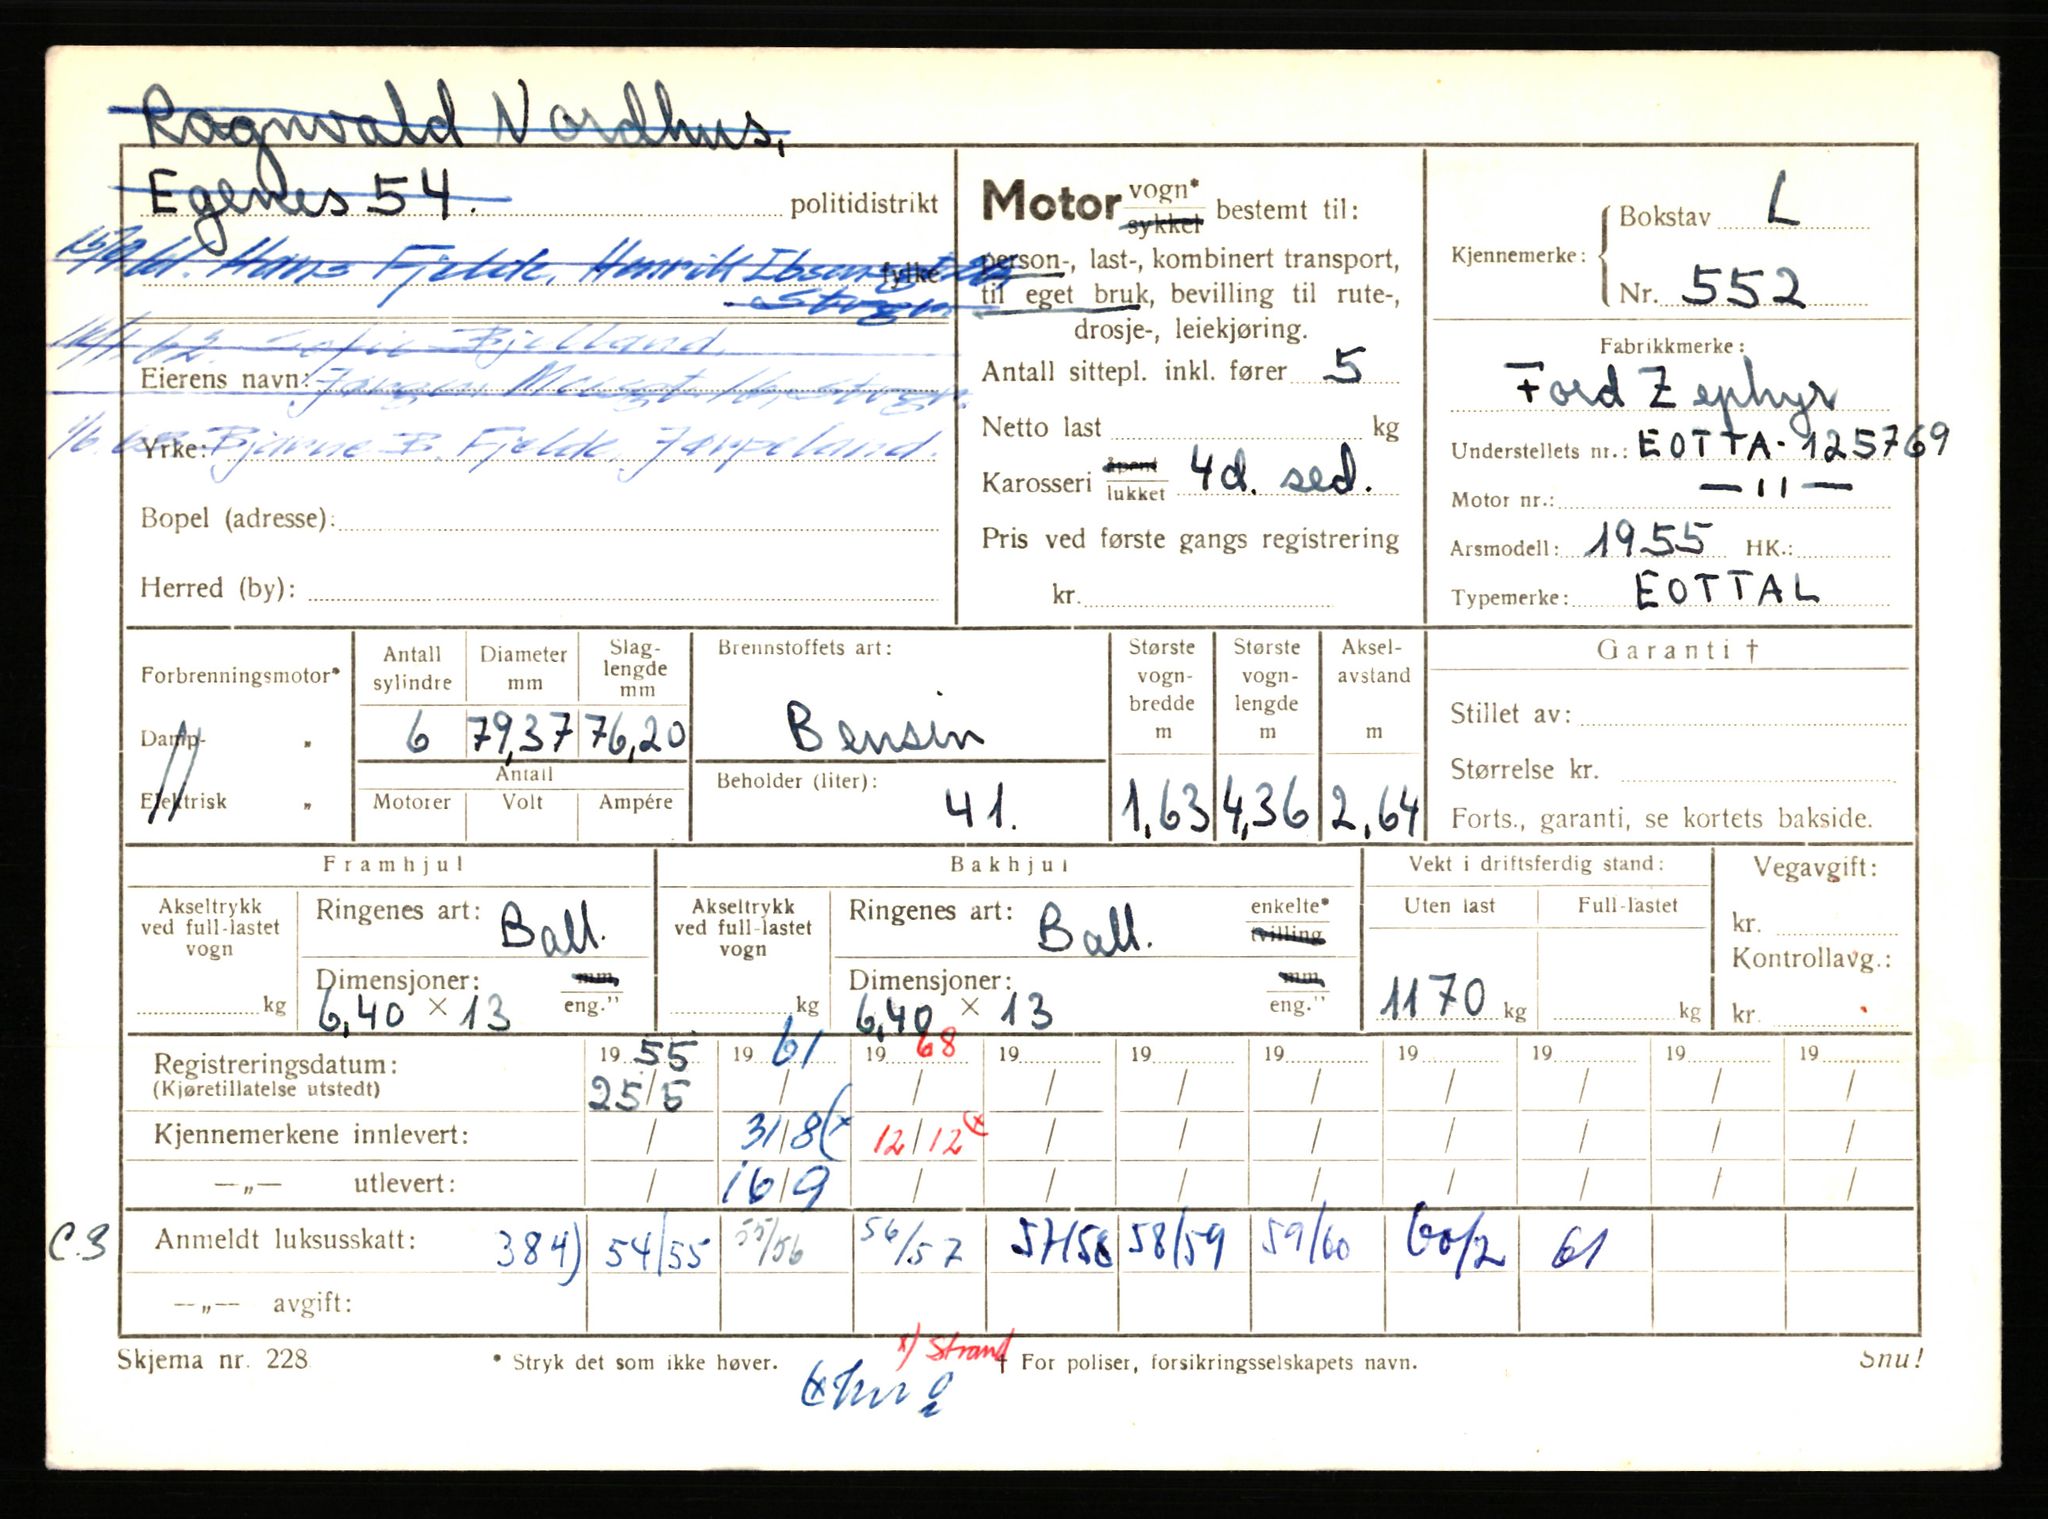 Ragnvald Nordhus,
Egenes 54. politidistrikt
Hans Fjelde, Henrik Ibsens fylke
Stvgr.
16/1.62. Sofie Bjelland
Eierens navn:
Yrke: Bjarne B. Fjelde, Jørpeland.
Bopel (adresse):
Herred (by):
Motor vogn* sykkel bestemt til:
person-, last-, kombinert transport,
til eget bruk, bevilling til rute-,
drosje-, leiekjøring.
Antall sittepl. inkl. fører 5
Netto last kg
Karosseri åpent lukket 4d. sed.
Pris ved første gangs registrering
kr.
Kjennemerke: Bokstav L
Nr. 552
Fabrikkmerke:
Ford Zephyr
Understellets nr.: EOTTA-125769
Motor nr.: — 11 —
Arsmodell: 1955 HK.:
Typemerke: EOTTAL
Forbrenningsmotor*
Damp- „
Elektrisk „
Antall sylindre Diameter mm Slaglengde mm
6 79,37 76,20
Antall
Motorer Volt Ampére
Brennstoffets art:
Bensin
Beholder (liter):
41.
Største vogn-bredde m
1,63
Største vogn-lengde m
4,36
Aksel-avstand m
2,64
Garanti †
Stillet av:
Størrelse kr.
Forts., garanti, se kortets bakside.
Framhjul
Akseltrykk ved full-lastet vogn
kg
Ringenes art: Ball.
Dimensjoner: mm eng."
6,40 × 13
Bakhjul
Akseltrykk ved full-lastet vogn
kg
Ringenes art: Ball. enkelte* tvilling
Dimensjoner: mm eng."
6,40 × 13
Vekt i driftsferdig stand:
Uten last Full-lastet
1170 kg kg
Vegavgift:
kr.
Kontrollavg.:
kr.
Registreringsdatum: 19 55 19 61 19 68 19 19 19 19 19 19 19
(Kjøretillatelse utstedt) 25/5 / / / / / / / / /
Kjennemerkene innlevert: / 31/8(x 12/12(x / / / / / / /
—„— utlevert: / 16/9 / / / / / / / /
C.3 Anmeldt luksusskatt: 384) 54/55 55/56 56/57 57/58 58/59 59/60 60/2 61
—„— avgift:
x) Strand
Skjema nr. 228 * Stryk det som ikke høver. † For poliser, forsikringsselskapets navn. Snu!